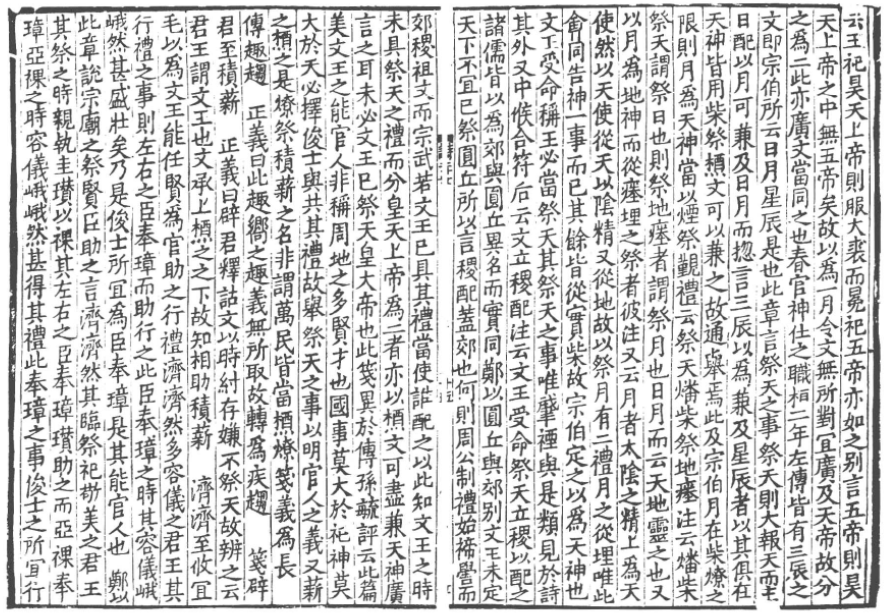 云王祀昊天上帝則服大裘而冕祀五帝亦如之别言五帝則昊
天上帝之中無五帝矣故以為一月令文無所對宜廣及天帝故分
之為二此亦廣文當同之也春官神仕之職桓二年左傳皆有三辰之
文即宗伯所云日月星辰是也此章言祭天之事祭天則大報天而主
日配以月可兼及日月而揔言三辰以為兼及星辰者以其俱在
天神皆用柴祭槱文可以兼之故通舉焉此及宗伯月在柴燎之
限則月為天神當以煙祭覲禮云祭天燔柴祭地瘞注云燔柴
祭天謂祭日也則祭地瘞者謂祭月也日月而云天地靈之也又
以月為地神而從瘞埋之祭者彼注又云月者太陰之精上為天
使然以天使從天以陰精又從地故以祭月有二禮月之從埋唯此
會同告神一事而已其餘皆從實柴故宗伯定之以為天神也
文王受命稱王必當祭天其祭天之事唯肇禋與是類見於詩
其外又中候合符后云文立稷配注云文王受命祭天立稷以配之
諸儒皆以為郊與圓丘異名而實同鄭以圓丘與郊别文王未定
天下不宜已祭圓丘所以言稷配蓋郊也何則周公制禮始禘嚳而
郊稷祖文而宗武若文王已具其禮當使誰配之以此知文王之時
未具祭天之禮而分皇天上帝為二者亦以槱文可盡兼天神廣
言之耳未必文王已祭天皇大帝也此箋異於傳孫毓評云此篇
美文王之能官人非稱周地之多賢才也國事莫大於祀神莫
大於天必擇俊士與共其禮故舉祭天之事以明官人之義又薪
之槱之是燎祭積薪之名非謂萬民皆當槱燎箋義為長
傳趣趨　正義曰此趣嚮之趣義無所取故轉為疾趨　箋辟
君至積薪　正義曰辟君釋詁文以時紂存嫌不祭天故辨之云
君王謂文王也文承上槱之之下故知相助積薪　濟濟至攸宜
毛以為文王能任賢為官助之行禮濟濟然多容儀之君王其
行禮之事則左右之臣奉璋而助行之此臣奉璋之時其容儀峨
峨然甚盛壯矣乃是俊士所宜為臣奉璋是其能官人也　鄭以
此章說宗廟之祭賢臣助之言濟濟然其臨祭祀敬美之君王
其祭之時親執圭瓚以祼其左右之臣奉璋瓚助之而亞祼奉
璋亞祼之時容儀峨峨然甚得其禮此奉璋之事俊士之所宜行